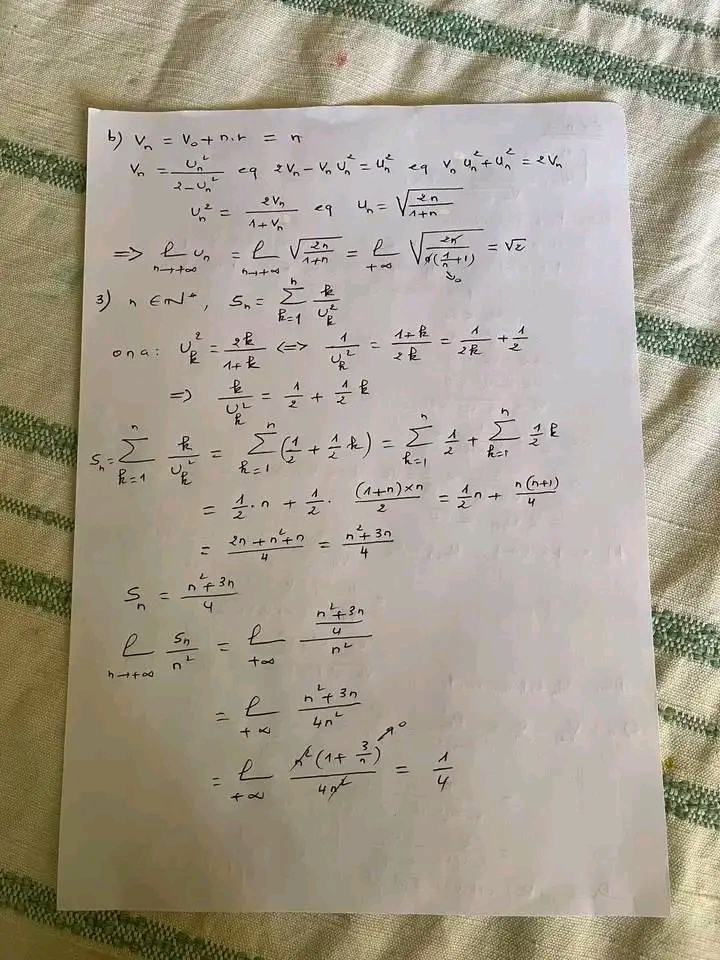 b) Vn = V₀ + n.r = n
Vn = Un²/(2-Un²) eq 2Vn - Vn Un² = Un² eq Vn Un² + Un² = 2Vn
Un² = 2Vn/(1+Vn) eq Un = √(2n/(1+n))
⟹ ℓ n→+∞ Un = ℓ n→+∞ √(2n/(1+n)) = ℓ +∞ √(2n/(n(1/n+1))) = √2
→0
3) n ∈ ℕ*, Sn = Σ k=1 n k/Uk²
on a: Uk² = 2k/(1+k) ⟺ 1/Uk² = (1+k)/2k = 1/2k + 1/2
⟹ k/Uk² = 1/2 + 1/2 k
Sn = Σ k=1 n k/Uk² = Σ k=1 n (1/2 + 1/2 k) = Σ k=1 n 1/2 + Σ k=1 n 1/2 k
= 1/2 · n + 1/2 · ((1+n)×n)/2 = 1/2 n + n(n+1)/4
= (2n + n² + n)/4 = (n² + 3n)/4
Sn = (n² + 3n)/4
ℓ n→+∞ Sn/n² = ℓ +∞ ((n² + 3n)/4)/n²
= ℓ +∞ (n² + 3n)/4n²
= ℓ +∞ n²(1 + 3/n)/4n² = 1/4
→0